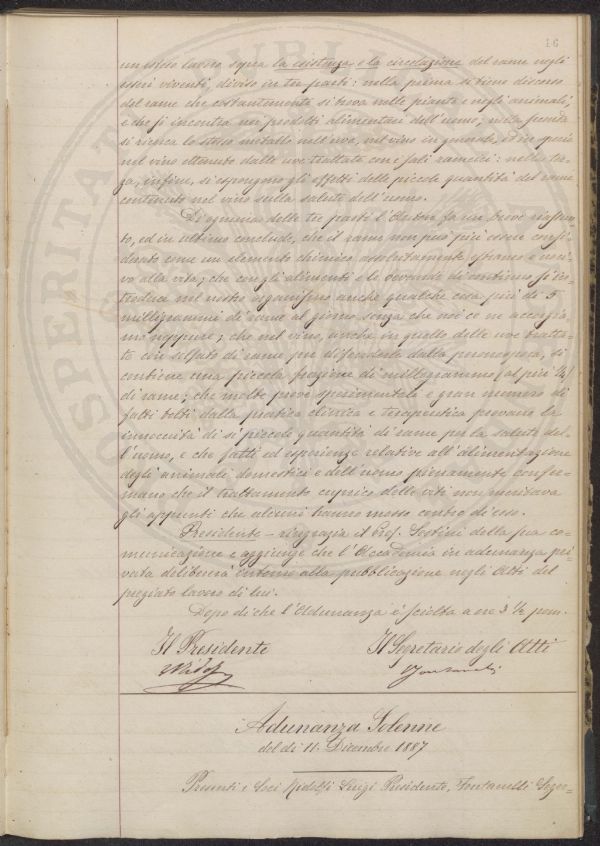 16
un esteso lavoro sopra la esistenza e la circolazione del rame negli
esseri viventi, diviso in tre parti: nella prima si tiene discorso
del rame che costantemente si trova nelle piante e negli animali,
e che si incontra nei prodotti alimentari dell'uomo; nella seconda
si ricerca lo stesso metallo nell'uva, nel vino in generale, ed in specie
nel vino ottenuto dalle uve trattate con i sali rameici: nella ter-
za, infine, si espongono gli effetti delle piccole quantità del rame
contenuto nel vino sulla salute dell'uomo.
Di ognuna delle tre parti l'Autore fa un breve riassun-
to, ed in ultimo conclude, che il rame non può più essere consi-
derato come un elemento chimico assolutamente estraneo e noci-
vo alla vita; che con gli alimenti e le bevande di continuo s'in-
troduce nel nostro organismo anche qualche cosa più di 5
milligrammi di rame al giorno senza che noi ce ne accorgia-
mo neppure; che nel vino, anche in quello delle uve tratta-
te con solfato di rame per difenderle dalla peronospora, si
contiene una piccola frazione di milligrammo (al più ¼)
di rame; che molte prove sperimentali e gran numero di
fatti tolti dalla pratica clinica e terapeutica provano la
innocuità di sì piccole quantità di rame per la salute del-
l'uomo, e che fatti ed esperienze relative all'alimentazione
degli animali domestici e dell'uomo pienamente confer-
mano che il trattamento cuprico delle viti non meritava
gli appunti che alcuni hanno mosso contro di esso.
Presidente – ringrazia il Prof. Sestini della sua co-
municazione e aggiunge che l'Accademia in adunanza pri-
vata delibererà intorno alla pubblicazione negli Atti del
pregiato lavoro di lui.
Dopo di che l'Adunanza è sciolta a ore 3 ½ pom.
Il Presidente Il Segretario degli Atti
Adunanza Solenne
del dì 11. Dicembre 1887
Presenti i Soci Ridolfi Luigi Presidente, Fontanelli Segre=